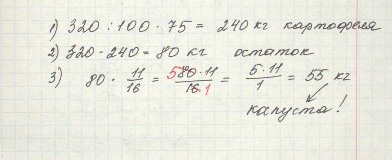 1) 320 : 100 · 75 = 240 кг картофеля
2) 320 - 240 = 80 кг остаток
3) 80 · 11/16 = 5 80·11/16·1 = 5·11/1 = 55 кг
капуста!